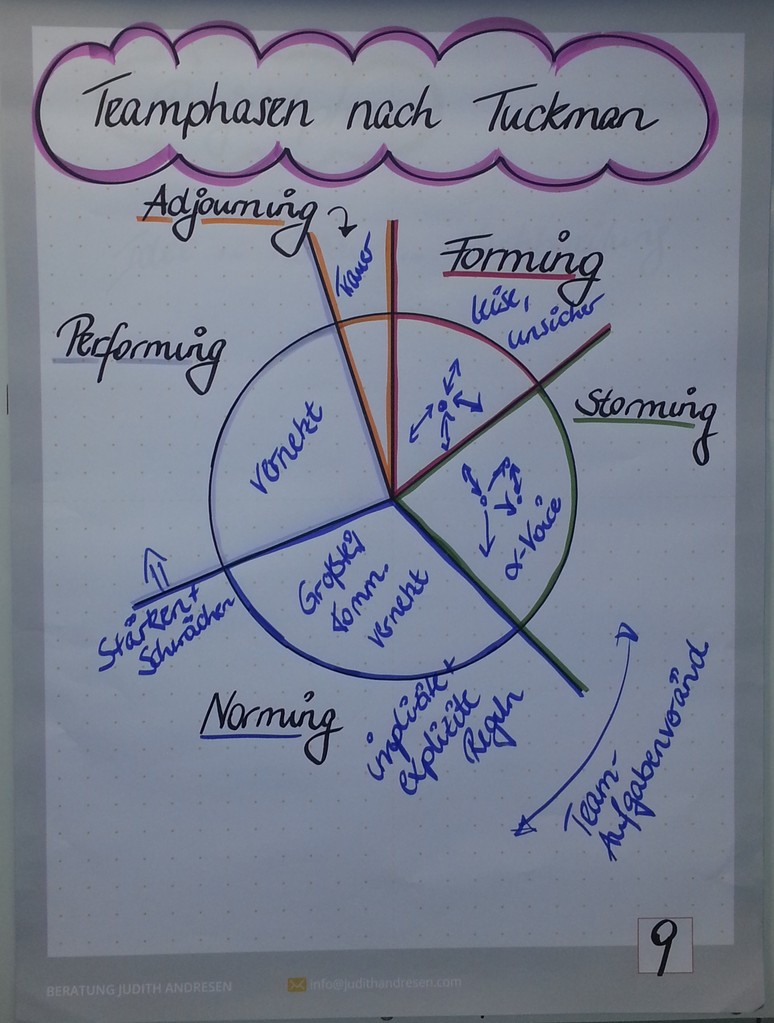 Teamphasen nach Tuckman
Adjourning
Trauer
Forming
leise,
unsicher
Performing
Storming
vernetzt
α-Voice
Stärken +
Schwächen
Komm.
vernetzt
Norming
implizite +
explizite
Regeln
Team-
9
BERATUNG JUDITH ANDRESEN
info@judithandresen.com